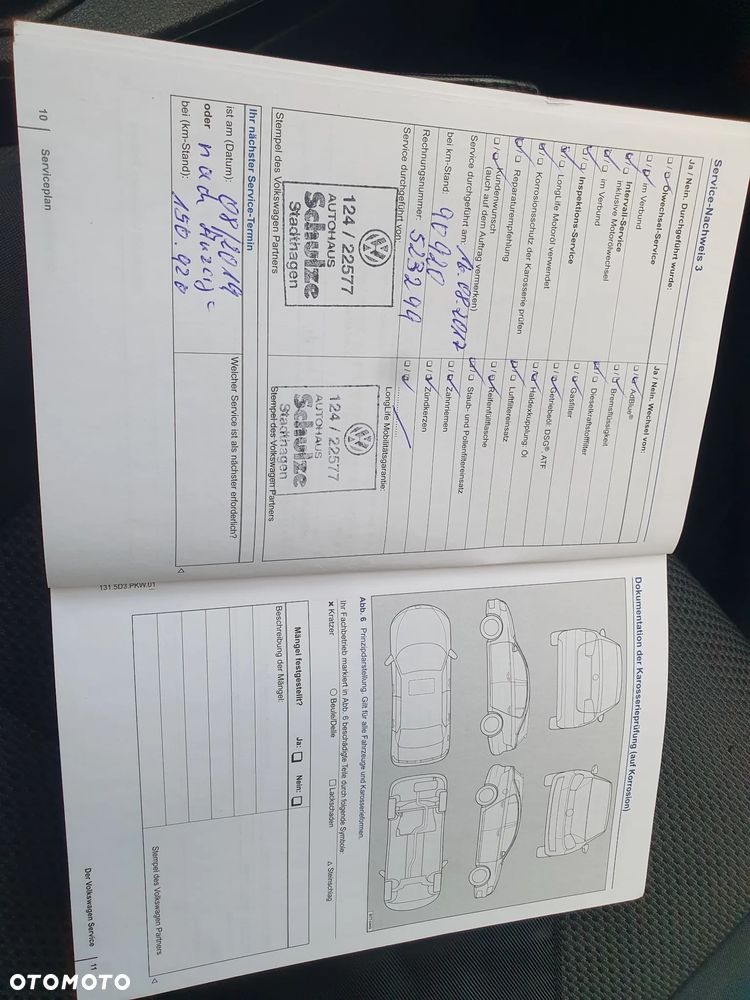 Service-Nachweis 3
Ja / Nein. Durchgeführt wurde:
Ölwechsel-Service
im Verbund
Intervall-Service
inklusive Motorölwechsel
im Verbund
Inspektions-Service
LongLife Motoröl verwendet
Korrosionsschutz der Karosserie prüfen
Reparaturempfehlung
Kundenwunsch
(auch auf dem Auftrag vermerken)
Service durchgeführt am: 16.08.2017
bei km-Stand: 90920
Rechnungsnummer: 523299
Service durchgeführt von:
124 / 22577
AUTOHAUS
Schulze
Stadthagen
Stempel des Volkswagen Partners
Ja / Nein. Wechsel von:
AdBlue®
Bremsflüssigkeit
Dieselkraftstofffilter
Gasfilter
Getriebeöl: DSG®, ATF
Haldexkupplung: Öl
Luftfiltereinsatz
Reifenfüllflasche
Staub- und Pollenfiltereinsatz
Zahnriemen
Zündkerzen
LongLife Mobilitätsgarantie:
124 / 22577
AUTOHAUS
Schulze
Stadthagen
Stempel des Volkswagen Partners
Ihr nächster Service-Termin
ist am (Datum): 08.2019
oder nach Anzeige
bei (km-Stand): 150.920
Welcher Service ist als nächster erforderlich?
10 Serviceplan
Dokumentation der Karosserieprüfung (auf Korrosion)
Abb. 6 Prinzipdarstellung: Gilt für alle Fahrzeuge und Karosserieformen.
Ihr Fachbetrieb markiert in Abb. 6 beschädigte Teile durch folgende Symbole:
× Kratzer
○ Beule/Delle
□ Lackschaden
△ Steinschlag
Mängel festgestellt? Ja: Nein:
Beschreibung der Mängel:
Stempel des Volkswagen Partners
131.5D3.PKW.01
Der Volkswagen Service 11
OTOMOTO